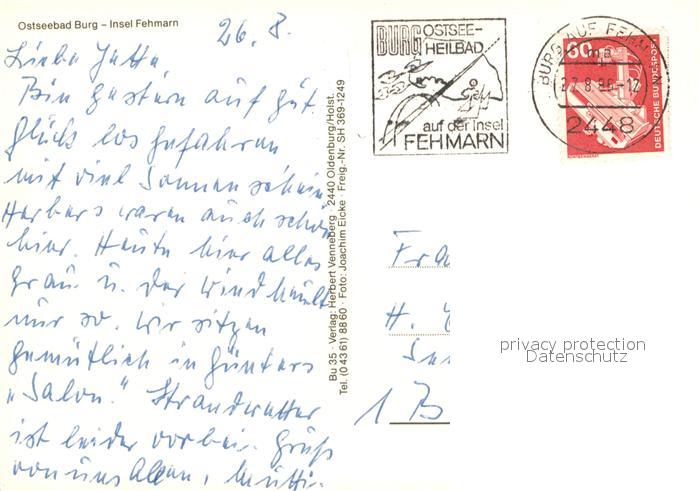 Ostseebad Burg – Insel Fehmarn
26. 8.
Liebe Jutta
Bin gestern auf gut
Glück los gefahren
mit viel Sonnenschein
Herbers waren auch schon
hier. Heute hier alles
grau u. der Wind heult
nur so. Wir sitzen
gemütlich in Günters
„Salon." Strandwetter
ist leider vorbei. Grüße
von uns Allen, Mutti.
Bu 35 · Verlag: Herbert Venneberg · 2440 Oldenburg/Holst.
Tel. (0 43 61) 88 60 · Foto: Joachim Eicke · Freig.-Nr. SH 369-1249
BURG OSTSEE-
HEILBAD
auf der Insel
FEHMARN
BURG AUF FEHM
27.8.
-12
2448
60
DEUTSCHE BUNDESPOST
Fra
H.
1 B
privacy protection
Datenschutz